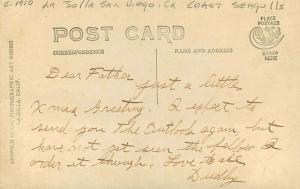 c.1910 La Jolla San Diego, Ca Coast Seagulls
POST CARD
PLACE
POSTAGE
STAMP
HERE
CORRESPONDENCE
NAME AND ADDRESS
Dear Father
just a little
Xmas Greeting. I expect to
send you The Outlook again, but
have not yet seen the fellow I
order it through. Love to all
PHOTOGRAPHIC ART
LA JOLLA, CALIF.